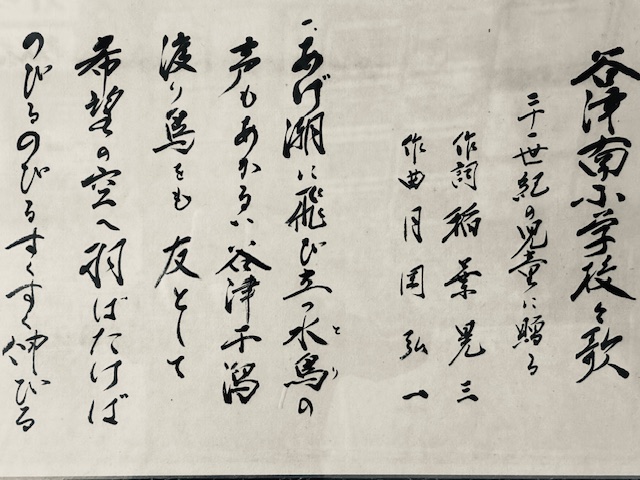 谷津南小学校々歌
二十一世紀の児童に贈る
作詞 稲葉晃三
作曲 月岡弘一
一、あげ潮に飛び立つ水鳥の
とり
声もあかるい谷津干潟
渡り鳥をも友として
希望の空へ羽ばたけば
のびるのびるすくすく伸びる